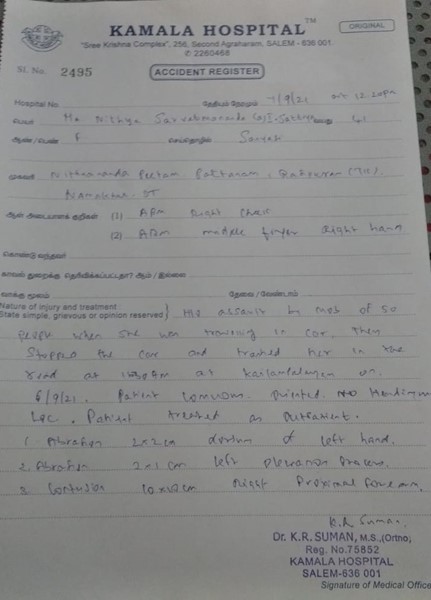 KAMALA HOSPITAL™
ORIGINAL
"Sree Krishna Complex", 256, Second Agraharam, SALEM - 636 001.
✆ 2260468
Sl. No. 2495
ACCIDENT REGISTER
Hospital No. தேதியும் நேரமும் 7/9/21 at 12.20pm
பெயர் Ma Nithya வயது 41
ஆண் / பெண் F செய்தொழில்
முகவரி Nithyananda Peetam Pattanam, Rasipuram (TK),
Namakkal DT
ஆள் அடையாளக் குறிகள் (1) ABM Right Cheek
(2) ABM middle finger Right hand
கொண்டு வந்தவர்
காவல் துறைக்கு தெரிவிக்கப்பட்டதா? ஆம் / இல்லை
வாக்கு மூலம் தேவை / வேண்டாம்
Nature of injury and treatment
State simple, grievous or opinion reserved
H/o assault by mob of 50
people when she was travelling in car. They
stopped the car and her in the
road at at on
6/9/21. Patient conscious. oriented. No
LOC. Patient treated as outpatient.
1. Abrasion 2x2 cm dorsum of left hand.
2. Abrasion 2x1 cm left olecranon process.
3. Contusion Right Proximal forearm.
K.R Suman.
Dr. K.R. SUMAN, M.S.,(Ortho)
Reg. No.75852
KAMALA HOSPITAL
SALEM-636 001
Signature of Medical Office